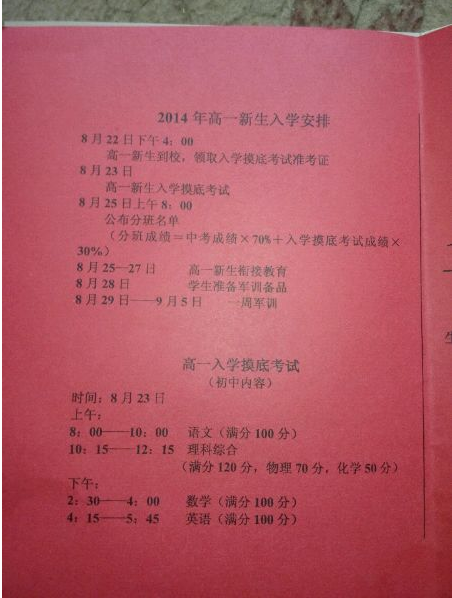 2014 年高一新生入学安排
8 月 22 日下午 4：00
高一新生到校，领取入学摸底考试准考证
8 月 23 日
高一新生入学摸底考试
8 月 25 日上午 8：00
公布分班名单
（分班成绩＝中考成绩×70%＋入学摸底考试成绩×
30%）
8 月 25—27 日 高一新生衔接教育
8 月 28 日 学生准备军训备品
8 月 29 日——9 月 5 日 一周军训
高一入学摸底考试
（初中内容）
时间：8 月 23 日
上午：
8：00——10：00 语文（满分 100 分）
10：15——12：15 理科综合
（满分 120 分，物理 70 分，化学 50 分）
下午：
2：30——4：00 数学（满分 100 分）
4：15——5：45 英语（满分 100 分）